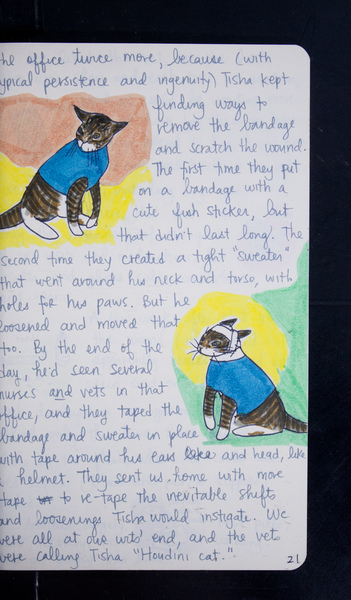 the office twice more, because (with
typical persistence and ingenuity) Tisha kept
finding ways to
remove the bandage
and scratch the wound.
The first time they put
on a bandage with a
cute fish sticker, but
that didn't last long. The
second time they created a tight "sweater"
that went around his neck and torso, with
holes for his paws. But he
loosened and moved that
too. By the end of the
day, he'd seen several
nurses and vets in that
office, and they taped the
bandage and sweater in place
with tape around his ears like and head, like
a helmet. They sent us home with more
tape to re-tape the inevitable shifts
and loosenings Tisha would instigate. We
were all at our wits' end, and the vets
were calling Tisha "Houdini cat."
21